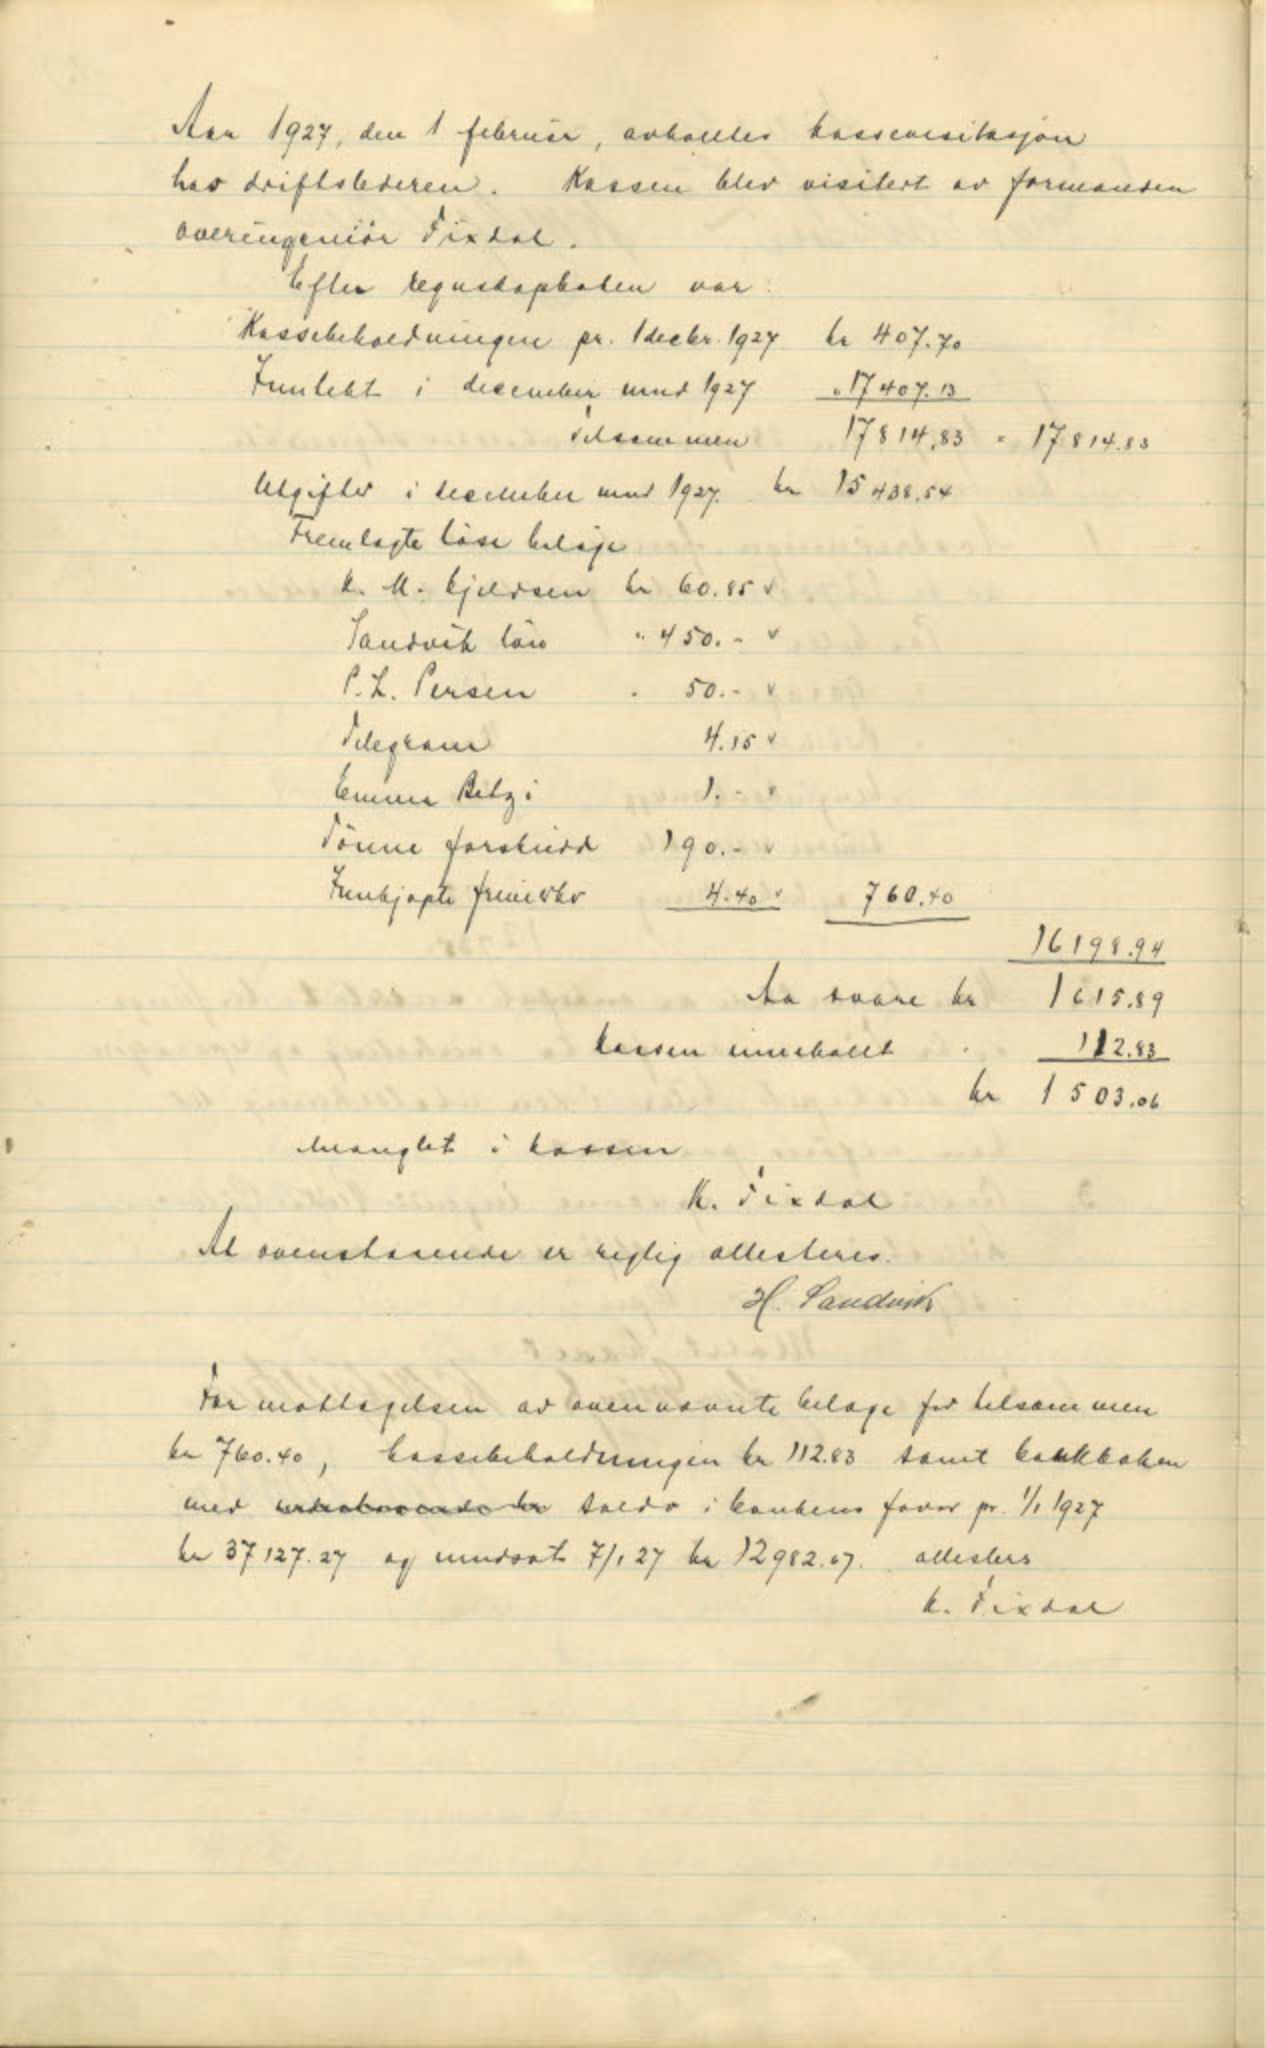 Aar 1927, den 1 februar, avholdtes kassevisitasjon
hos driftslederen. Kassen blev visitert av formanden
overingeniör Fixdal.
Efter regnskapboken var:
Kassebeholdningen pr. 1 decbr. 1927 kr 407.70
Inntekt i december mnd 1927 " 17407.13
Tilsammen 17814.83 = 17814.83
Utgifter i december mnd 1927. kr 15438.54
Fremlagte löse belage
K. M. Kjeldsen kr 60.85 v
Sandvik lön " 450.- v
P. L. Persen " 50.- v
Telegram 4.15 v
Emma Betzi 1.- v
Tönne forskudd 190.- v
Innkjöpte frimerker 4.40 v 760.40
16198.94
Aa svare kr 1615.89
Kassen inneholdt " 112.83
kr 1503.06
manglet i kassen
K. Fixdal
At ovenstaaende er rigtig attesteres.
H. Sandvik
For mottagelsen av ovennævnte belage for tilsammen
kr 760.40, kassebeholdningen kr 112.83 samt bankboken
med saldo i bankens favör pr. 1/1 1927
kr 37127.27 og inndsat 7/1 27 kr 12982.07. attesters
K. Fixdal